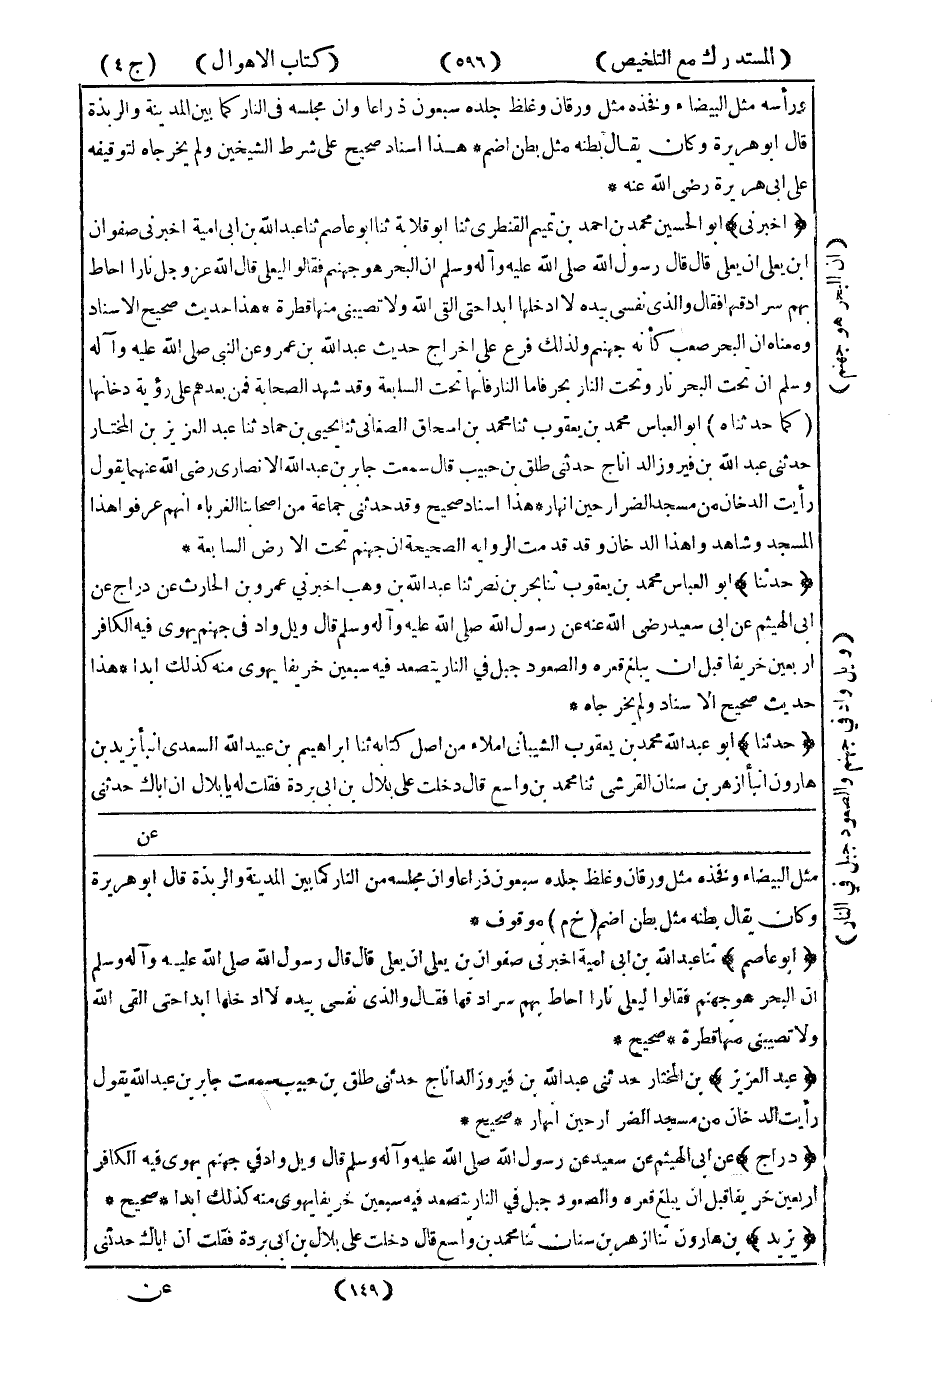 (المستدرك مع التلخيص) (٥٩٦) (كتاب الاهوال) (ج٤)
ورأسه مثل البيضاء وفخذه مثل ورقان وغلظ جلده سبعون ذراعا وان مجلسه فى النار كما بين المدينة والربذة
قال ابو هريرة وكان يقال بطنه مثل بطن اضم * هذا اسناد صحيح على شرط الشيخين ولم يخرجاه لتوقيفه
على ابى هريرة رضى الله عنه *
﴿ اخبرنى ﴾ ابو الحسين محمد بن احمد بن تميم القنطرى ثنا ابو قلابة ثنا ابو عاصم ثنا عبد الله بن ابى امية اخبرنى صفوان
ابن يعلى ان يعلى قال قال رسول الله صلى الله عليه وآله وسلم ان البحر هو جهنم فقالوا ليعلى قال الله عز وجل نارا احاط
بهم سرادقها فقال والذى نفسى بيده لا ادخلها ابدا حتى القى الله ولا تصيبنى منها قطرة * هذا حديث صحيح الاسناد
ومعناه ان البحر صعب كأنه جهنم ولذلك فرع على اخراج حديث عبد الله بن عمرو عن النبى صلى الله عليه وآله
وسلم ان تحت البحر نار وتحت النار بحر فاما النار فانها تحت السابعة وقد شهد الصحابة فمن بعدهم على رؤية دخانها
(كما حدثناه) ابو العباس محمد بن يعقوب ثنا محمد بن اسحاق الصغانى ثنا يحيى بن حماد ثنا عبد العزيز بن المختار
حدثنى عبد الله بن فيروز الداناج حدثنى طلق بن حبيب قال سمعت جابر بن عبد الله الانصارى رضى الله عنهما يقول
رأيت الدخان من مسجد الضرار حين انهار * هذا اسناد صحيح وقد حدثنى جماعة من اصحابنا الغرباء انهم عرفوا هذا
المسجد وشاهدوا هذا الدخان وقد قدمت الروايه الصحيحة ان جهنم تحت الارض السابعة *
﴿ حدثنا ﴾ ابو العباس محمد بن يعقوب ثنا بحر بن نصر ثنا عبد الله بن وهب اخبرنى عمرو بن الحارث عن دراج عن
ابى الهيثم عن ابى سعيد رضى الله عنه عن رسول الله صلى الله عليه وآله وسلم قال ويل واد فى جهنم يهوى فيه الكافر
اربعين خريفا قبل ان يبلغ قعره والصعود جبل فى النار يتصعد فيه سبعين خريفا يهوى منه كذلك ابدا * هذا
حديث صحيح الاسناد ولم يخرجاه *
﴿ حدثنا ﴾ ابو عبد الله محمد بن يعقوب الشيبانى املاء من اصل كتابه ثنا ابراهيم بن عبيد الله السعدى انبأ يزيد بن
هارون انبأ أزهر بن سنان القرشى ثنا محمد بن واسع قال دخلت على بلال بن ابى بردة فقلت له يا بلال ان اباك حدثنى
عن
مثل البيضاء وفخذه مثل ورقان وغلظ جلده سبعون ذراعا وان مجلسه من النار كما بين المدينة والربذة قال ابو هريرة
وكان يقال بطنه مثل بطن اضم (خ م) موقوف *
﴿ ابو عاصم ﴾ ثنا عبد الله بن ابى امية اخبرنى صفوان بن يعلى ان يعلى قال قال رسول الله صلى الله عليه وآله وسلم
ان البحر هو جهنم فقالوا ليعلى نارا احاط بهم سرادقها فقال والذى نفسى بيده لا ادخلها ابدا حتى القى الله
ولا تصيبنى منها قطرة * صحيح *
﴿ عبد العزيز ﴾ بن المختار حدثنى عبد الله بن فيروز الداناج حدثنى طلق بن حبيب سمعت جابر بن عبد الله يقول
رأيت الدخان من مسجد الضرار حين انهار * صحيح *
﴿ دراج ﴾ عن ابى الهيثم عن سعيد عن رسول الله صلى الله عليه وآله وسلم قال ويل واد فى جهنم يهوى فيه الكافر
اربعين خريفا قبل ان يبلغ قعره والصعود جبل فى النار يتصعد فيه سبعين خريفا يهوى منه كذلك ابدا * صحيح *
﴿ يزيد ﴾ بن هارون ثنا ازهر بن سنان ثنا محمد بن واسع قال دخلت على بلال بن ابى بردة فقلت ان اباك حدثنى
(١٤٩) عن
(ان البحر هو جهنم)
(ويل واد فى جهنم والصعود جبل فى النار)